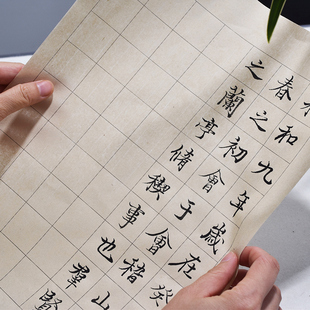 和九年歲在癸
春之初會于會稽山
之蘭亭脩禊事也羣賢